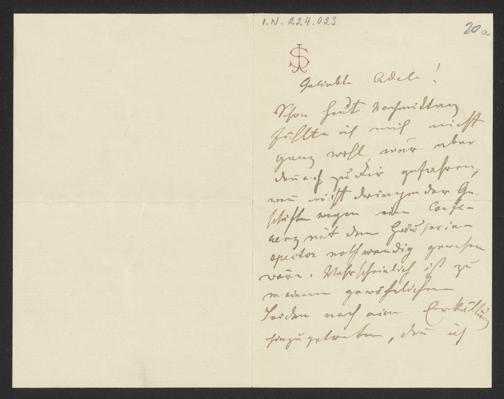 I.N. 224.023
20a
JS
Geliebte Adele!
Schon heut Nachmittag
fühlte ich mich nicht
ganz wohl wär aber
dennoch zu Dir gefahren,
wenn nicht dringender Ge-
schäfte wegen eine Confe-
renz mit dem
nothwendig gewesen
wäre. Wahrscheinlich ist zu
meinem gewöhnlichen
Leiden noch eine Erkältung
hinzugetreten, denn ich